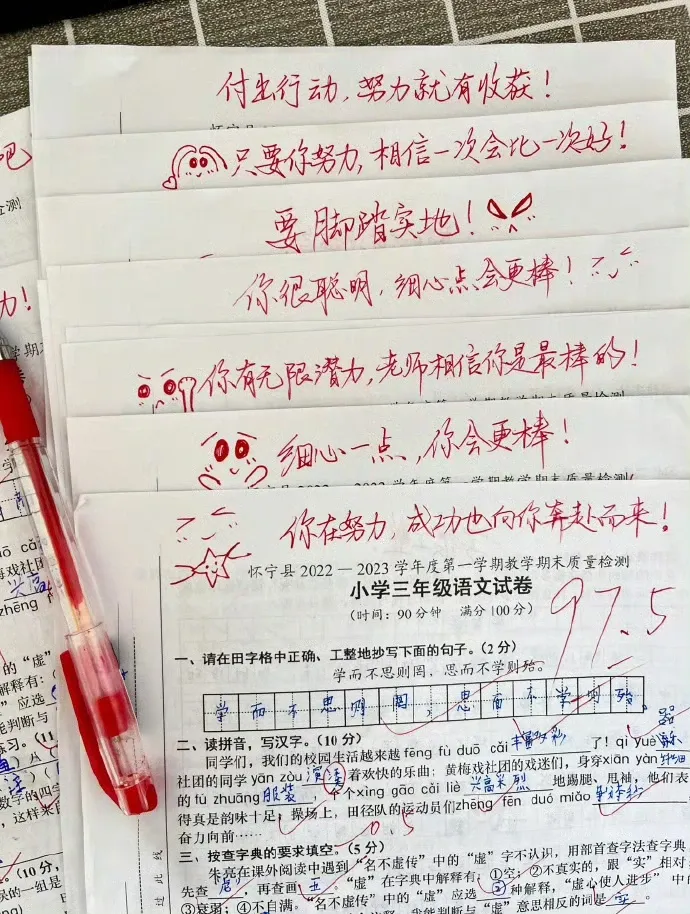 付出行动，努力就有收获！
只要你努力，相信一次会比一次好！
要脚踏实地！
你很聪明，细心点会更棒！
你有无限潜力，老师相信你是最棒的！
细心一点，你会更棒！
怀宁县 2022 — 2023 学年度第一学期教学期末质量检测
你在努力，成功也向你奔赴而来！
怀宁县 2022 — 2023 学年度第一学期教学期末质量检测
小学三年级语文试卷
（时间：90 分钟 满分 100 分）
97.5
一、请在田字格中正确、工整地抄写下面的句子。（2 分）
学而不思则罔，思而不学则殆。
学而不思则罔，思而不学则殆。
二、读拼音，写汉字。（10 分）
同学们，我们的校园生活越来越 fēng fù duō cǎi 丰富多彩 了！qì yuè 器乐
社团的同学 yǎn zòu 演奏 着欢快的乐曲；黄梅戏社团的戏迷们，身穿 xiān yàn 鲜艳
的 fú zhuāng 服装，个个 xìng gāo cǎi liè 兴高采烈 地踢腿、甩袖，他们表
得真是韵味十足；操场上，田径队的运动员们 zhēng fēn duó miǎo
奋力向前……
0.5
三、按查字典的要求填空。（5 分）
朱亮在课外阅读中遇到“名不虚传”中的“虚”字不认识，用部首查字法查字典
先查 虍，再查画 五。“虚”在字典中解释有：①空；②不真实的，跟“实”相对
③衰弱；④不自满。“名不虚传”中的“虚”应选 ② 种解释，“虚心使人进步”中
“虚”意思相反的词是 实。
吧
力！